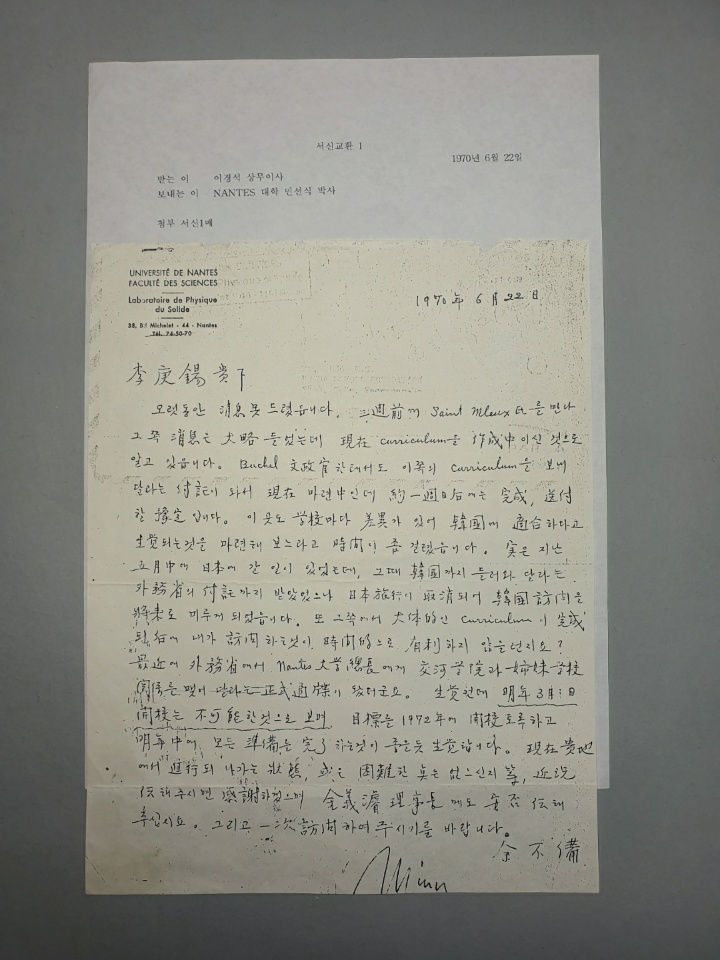 서신교환 1
1970년 6월 22일
받는 이 이경석 상무이사
보내는 이 NANTES 대학 민선식 박사
첨부 서신1매
UNIVERSITÉ DE NANTES
FACULTÉ DES SCIENCES
Laboratoire de Physique
du Solide
38, Bd Michelet - 44 - Nantes
Tél. 74-50-70
1970年 6月 22日
李庚錫 貴下
오랫동안 消息 못 드렸읍니다. 三週前에 Saint Mleux 를 만나
그쪽 消息은 大略 들었는데 現在 curriculum을 作成中이신 것으로
알고 있읍니다. Buchel 文政官한테서도 이쪽의 curriculum을 보내
달라는 付託이 와서 現在 마련中인데 約 一週日后에는 完成, 送付
할 豫定입니다. 이곳도 学校마다 差異가 있어 韓国에 適合하다고
生覚되는것을 마련해 보느라고 時間이 좀 걸렸읍니다. 実은 지난
五月中에 日本에 갈 일이 있었는데, 그때 韓国까지 들러와 달라는
外務省의 付託까지 받았었으나 日本旅行이 取消되어 韓国訪問을
将来로 미루게 되었읍니다. 또 그쪽에서 大体的인 curriculum이 完成
된 后에 내가 訪問하는것이 時間的으로 有利하지 않을런지요?
最近에 外務省에서 Nantes 大学 總長에게 交河学院과 姉妹学校
関係를 맺어 달라는 正式通牒이 왔더군요. 生覚컨데 明年 3月1日
開校는 不可能한것으로 보며 目標를 1972年에 開校토록하고
明年中에 모든 準備를 完了하는것이 좋은듯 生覚됩니다. 現在 貴地
에서 進行되 나가는 状態, 或은 困難한 点은 없으신지 等, 近況
伝해 주시면 感謝하겠으며 金義濬 理事長 께도 安否 伝해
주십시요. 그리고 一次 訪問하여 주시기를 바랍니다.
余不備
Minn